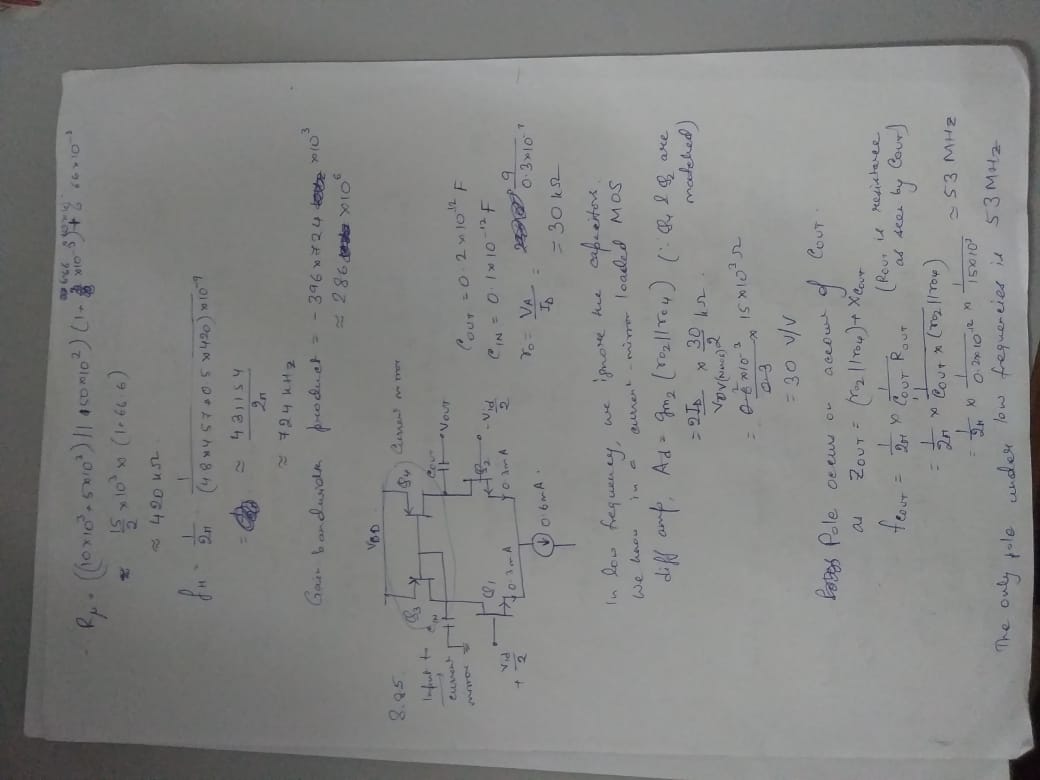 Rμ = ((10×10³ + 5×10³) || 150×10²) (1 + ×10⁻³) + 66×10⁻³
≈ 15/2 ×10³ × (1+66.6)
≈ 420 kΩ
fH = 1/2π 1/(48×457+0.5×420)×10⁻⁹
= ≈ 431154/2π
≈ 724 kHz
Gain bandwidth product = -396×724 ×10³
≈ 286 ×10⁶
8.95
VDD
Q3
Q4
Current mirror
Input to current mirror
CIN
COUT
VOUT
Q1
Q2
+Vid/2
-Vid/2
0.3mA
0.3mA
0.6mA
COUT = 0.2×10⁻¹² F
CIN = 0.1×10⁻¹² F
ro = VA/ID = 9/0.3×10⁻³
= 30 kΩ
In low frequency, we ignore the capacitors.
We know in a current-mirror loaded MOS
diff amp, Ad = gm2 (ro2||ro4) (∵ Q1 & Q2 are matched)
= 2ID/VOV(NMOS) × 30/2 kΩ
= 0.6×10⁻³/0.3 × 15×10³ Ω
= 30 V/V
Pole occurs on account of COUT.
as ZOUT = (ro2||ro4)+XCOUT
fCOUT = 1/2π × 1/COUT ROUT (ROUT is resistance as seen by COUT)
= 1/2π × 1/COUT × (ro2||ro4)
= 1/2π × 1/0.2×10⁻¹² × 1/15×10³ ≈ 53 MHz
The only pole under low frequencies is 53 MHz